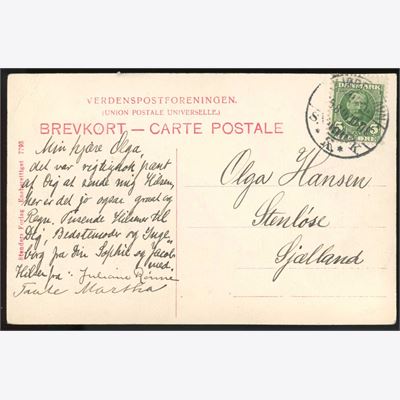 VERDENSPOSTFORENINGEN.
(UNION POSTALE UNIVERSELLE.)
BREVKORT — CARTE POSTALE
DANMARK
5 5
ØRE
Min kjære Olga,
det var rigtignok pænt
af Dig at sende mig Hilsen,
her er det jo ogsaa graat og
Regn. Tusende Hilsener til
Dig, Bedstemoder og Inge-
borg fra Din Sophie og Jacob
Hilsen med
fra: Juliane Rønne
Tante Martha
Olga Hansen
Stenløse
Sjælland
Stenders Forlag Eneberettiget 7793